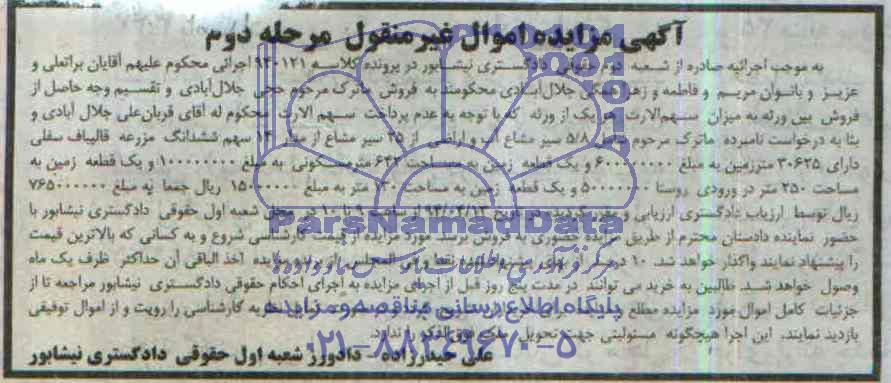 آگهی مزایده اموال غیرمنقول مرحله دوم
به موجب اجرائیه صادره از شعبه دوم حقوقی دادگستری نیشابور در پرونده کلاسه ۹۴۰۱۲۱ اجرائی محکوم علیهم آقایان براتعلی و
عزیز و بانوان مریم و فاطمه و زهرا همگی جلال‌آبادی محکومند به فروش ماترک مرحوم حجی جلال‌آبادی و تقسیم وجه حاصل از
فروش بین ورثه به میزان سهم‌الارث هر یک از ورثه که با توجه به عدم پرداخت سهم الارث محکوم له آقای قربان‌علی جلال آبادی و
بنا به درخواست نامبرده ماترک مرحوم شامل ۵/۸ سیر مشاع آب و اراضی از ۳۵ سیر مشاع از مدار ۱۴ سهم ششدانگ مزرعه قالیباف سفلی
دارای ۳۰۶۲۵ مترزمین به مبلغ ۶۰۰۰۰۰۰۰۰ و یک قطعه زمین به مساحت ۶۴۲ مترمسکونی به مبلغ ۱۰۰۰۰۰۰۰۰ و یک قطعه زمین به
مساحت ۲۵۰ متر در ورودی روستا ۵۰۰۰۰۰۰۰ و یک قطعه زمین به مساحت ۱۳۰ متر به مبلغ ۱۵۰۰۰۰۰۰ ریال جمعا به مبلغ ۷۶۵۰۰۰۰۰۰
ریال توسط ارزیاب دادگستری ارزیابی و مقرر گردیده در تاریخ ۹۴/۰۴/۱۳ از ساعت ۹ تا ۱۰ در محل شعبه اول حقوقی دادگستری نیشابور با
حضور نماینده دادستان محترم از طریق مزایده حضوری به فروش برسد مورد مزایده از قیمت کارشناسی شروع و به کسانی که بالاترین قیمت
را پیشنهاد نمایند واگذار خواهد شد. ۱۰ درصد از بهای مورد مزایده نقدا و فی المجلس از برنده مزایده اخذ الباقی آن حداکثر ظرف یک ماه
وصول خواهد شد. طالبین به خرید می توانند در مدت پنج روز قبل از اجرای مزایده به اجرای احکام حقوقی دادگستری نیشابور مراجعه تا از
جزئیات کامل اموال مورد مزایده مطلع کارشناسی را رویت و از اموال توقیفی
بازدید نمایند. این اجرا هیچگونه مسئولیتی جهت تحویل ملک فوق الذکر را ندارد.
علی حیدرزاده - دادورز شعبه اول حقوقی دادگستری نیشابور
ParsNamadData
مرکز فرآوری اطلاعات پارس نماد داده‌ها
پایگاه اطلاع رسانی مناقصه و مزایده
۰۲۱-۸۸۳۴۹۶۷۰-۵